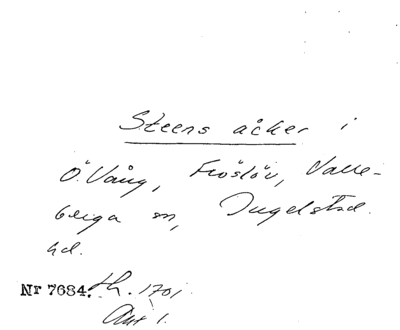 Steens åker i
Ö. Vång, Fröslöv, Valle-
berga sn, Ingelstad.
hd.
Nr 7684. Lh. 1701
Akt 1.